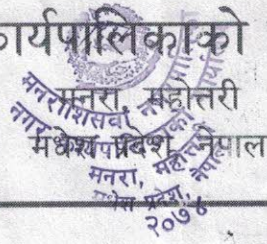 कार्यपालिकाको
मनरा, महोत्तरी
मधेश प्रदेश, नेपाल
मनरा शिसवा
नगर कार्यपालिकाको कार्यालय
मनरा, महोत्तरी
मधेश प्रदेश, नेपाल
२०७४